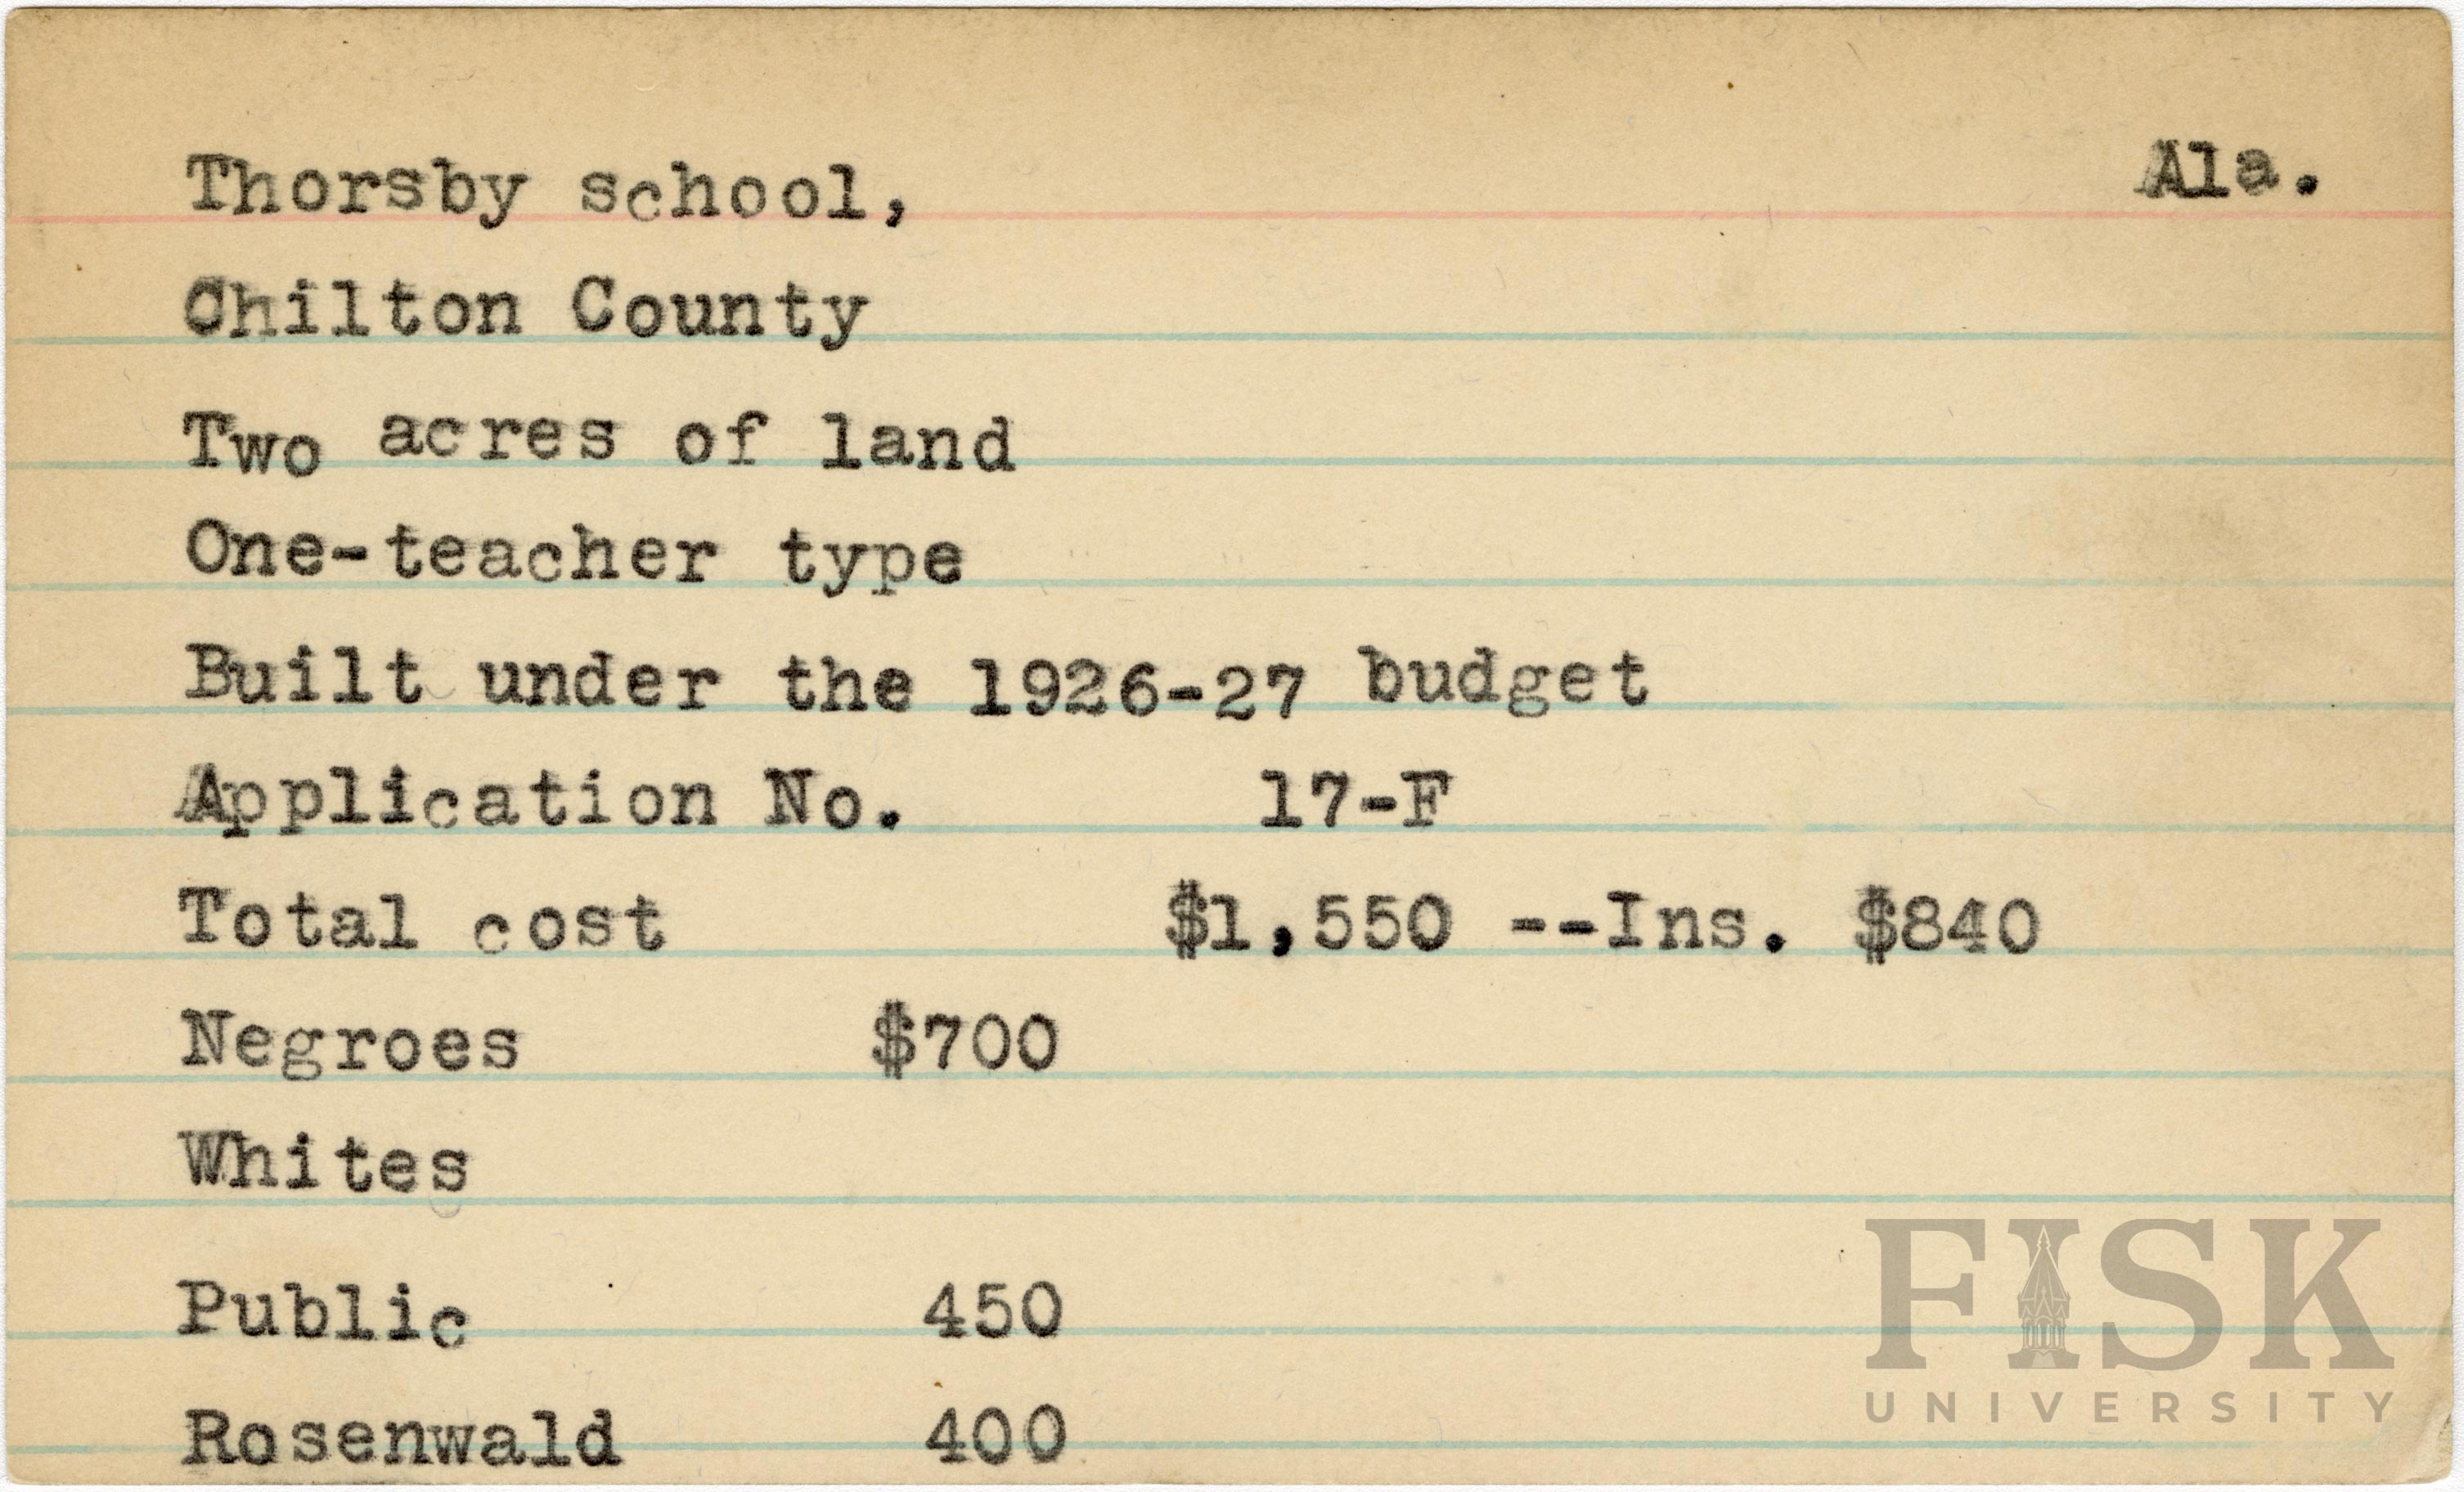 Thorsby school, Ala.
Chilton County
Two acres of land
One-teacher type
Built under the 1926-27 budget
Application No. 17-F
Total cost $1,550 --Ins. $840
Negroes $700
Whites
Public 450
Rosenwald 400
FISK
UNIVERSITY